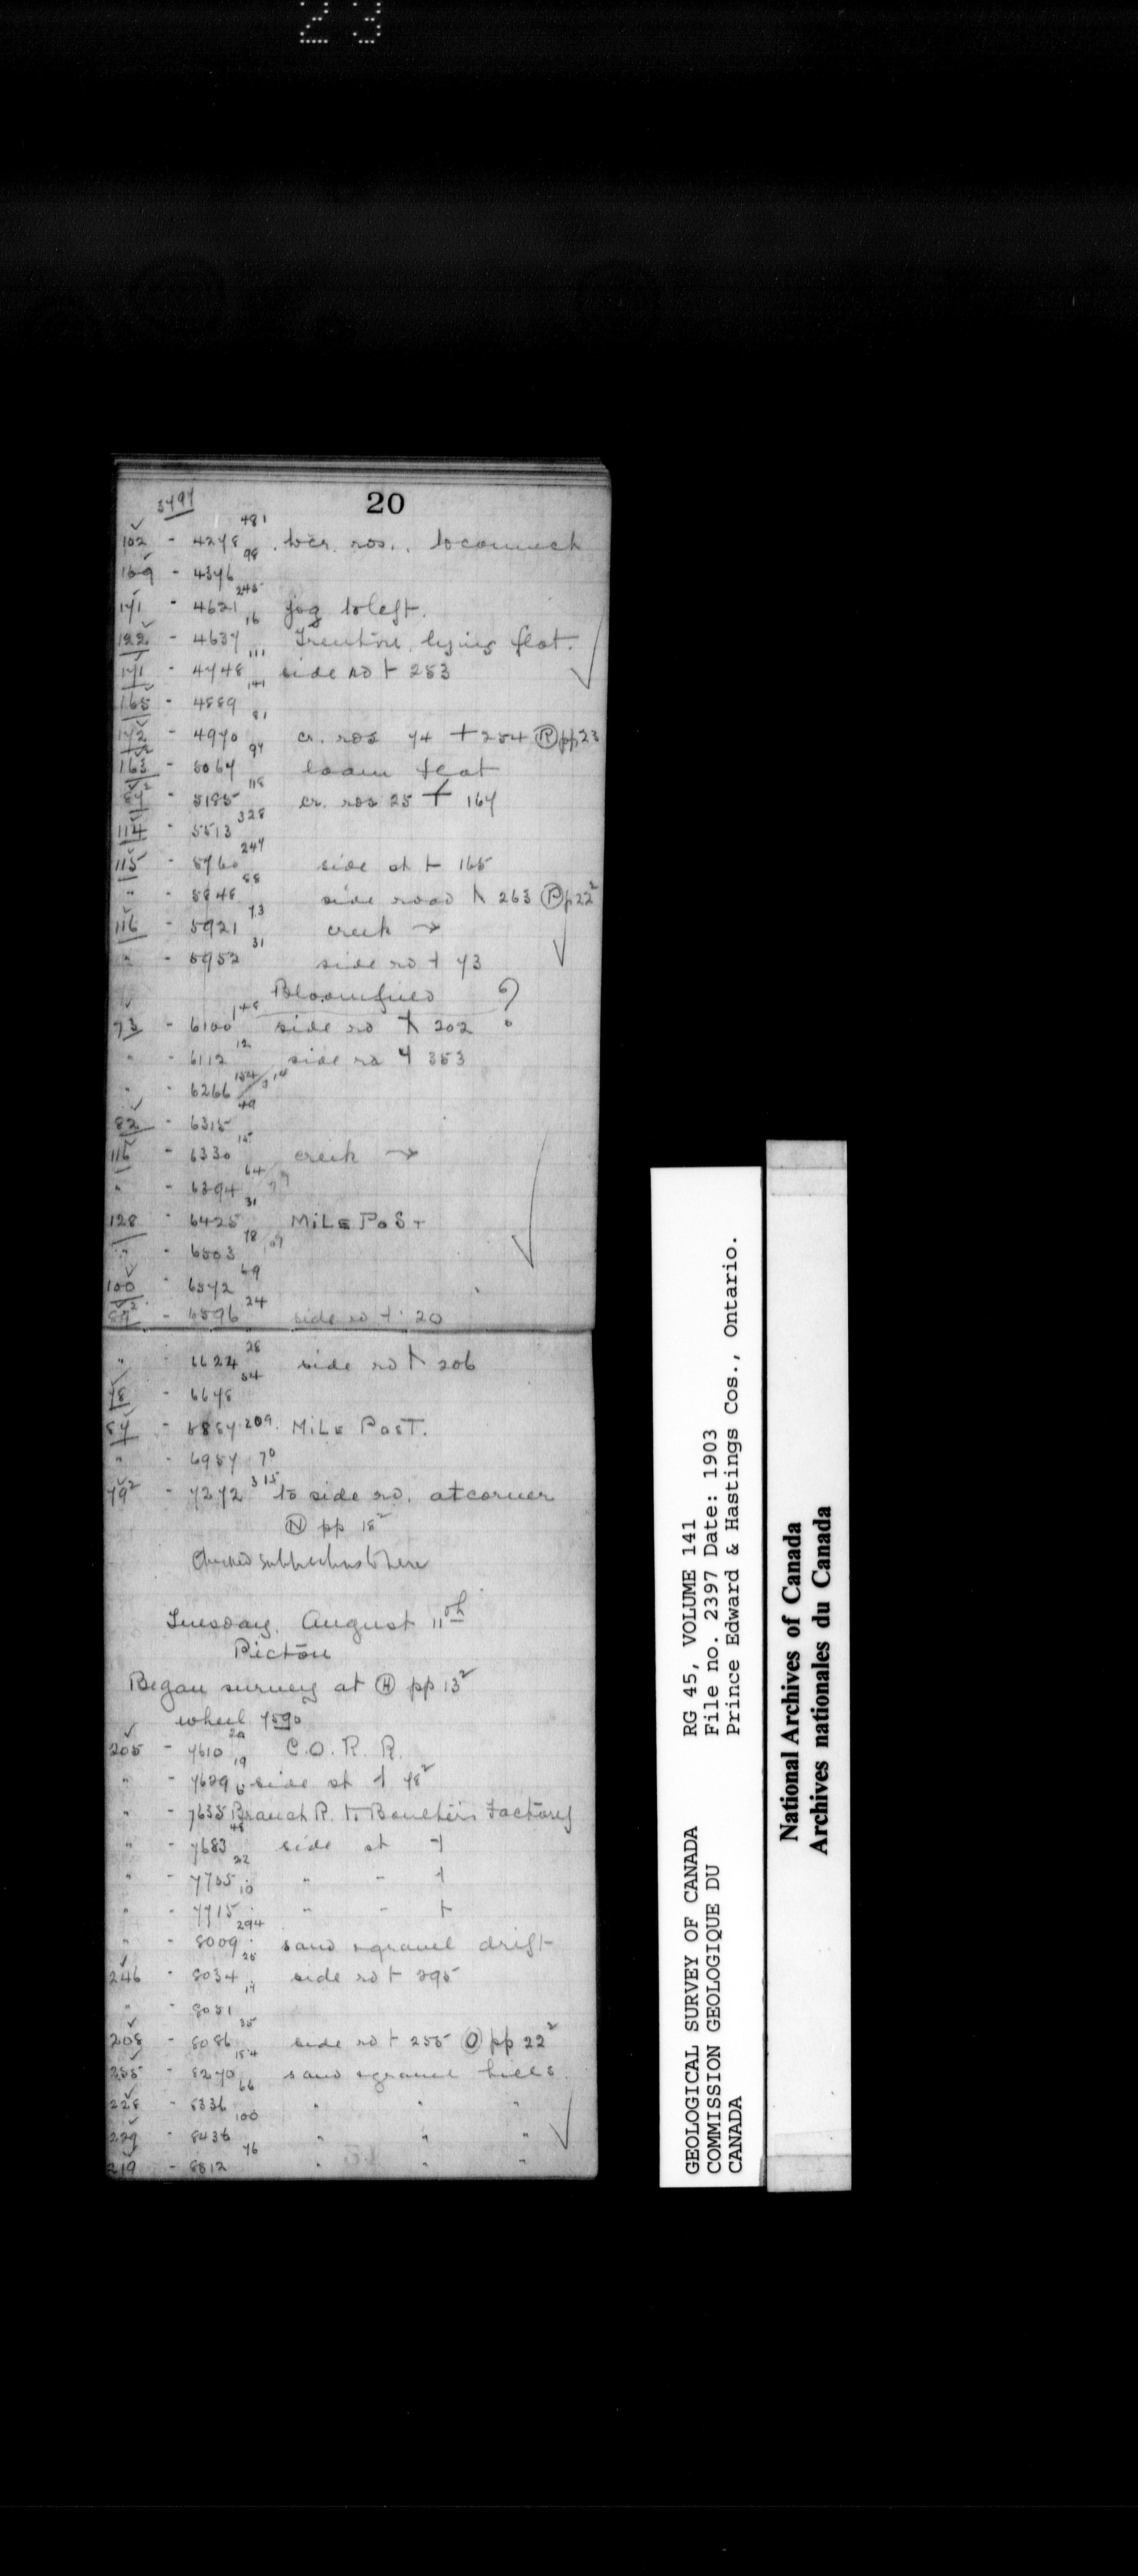 23
20
3797
102 - 4278 481 to cr. ros., to connect
169 - 4376 98
171 - 4621 245 jog to left.
122 - 4637 16 Trenton, lying flat.
171 - 4748 111 side ro ⊢ 253
165 - 4889 141
172 - 4970 81 cr. ros 74 + 254 Ⓡ pp 23
163² - 5067 97 loam flat
- 5185 118 cr. ros 25 + 167
114 - 5513 328
115 - 5760 247 side st ⊢ 165
" - 5848 88 side road 263 Ⓟ p 22²
116 - 5921 73 creek →
" - 5952 31 side ro ⊣ 73
Bloomfield ?
73 - 6100 148 side ro 202
" - 6112 12 side ro 353
" - 6266 154
82 - 6315 49
116 - 6330 15 creek →
" - 6394 64
128 - 6425 31 MILE POST
" - 6503 78
100 - 6572 69
89² - 6596 24 side ro ⊣ 20
" - 6624 28 side ro 206
78 - 6678 54
87 - 6887 209 MILE POST.
" - 6957 70
79² - 7272 315 to side ro. at corner
Ⓝ pp 18²
Tuesday, August 11th
Picton
Began survey at Ⓗ pp 13²
wheel 7590
205 - 7610 20 C.O.R.R.
" - 7629 19 side st ⊣ 78²
" - 7635 6 Branch R. to Boulter's Factory
" - 7683 48 side st ⊣
" - 7705 22 " " ⊣
" - 7715 10 " " ⊢
" - 8009 294 sand & gravel drift
246 - 8034 25 side ro ⊢ 295
" - 8051 17
208 - 8086 35 side ro ⊢ 255 Ⓞ pp 22²
255 - 8270 184 sand & gravel hills
228 - 8336 66 " " "
229 - 8436 100 " " "
219 - 8512 76 " " "
GEOLOGICAL SURVEY OF CANADA
COMMISSION GEOLOGIQUE DU
CANADA
RG 45, VOLUME 141
File no. 2397 Date: 1903
Prince Edward & Hastings Cos., Ontario.
National Archives of Canada
Archives nationales du Canada